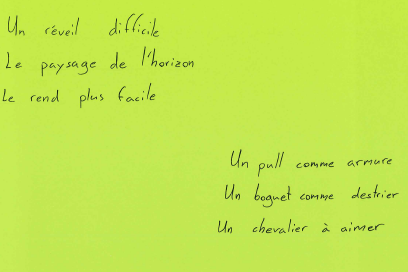 Un réveil difficile
Le paysage de l'horizon
Le rend plus facile
Un pull comme armure
Un boguet comme destrier
Un chevalier à aimer